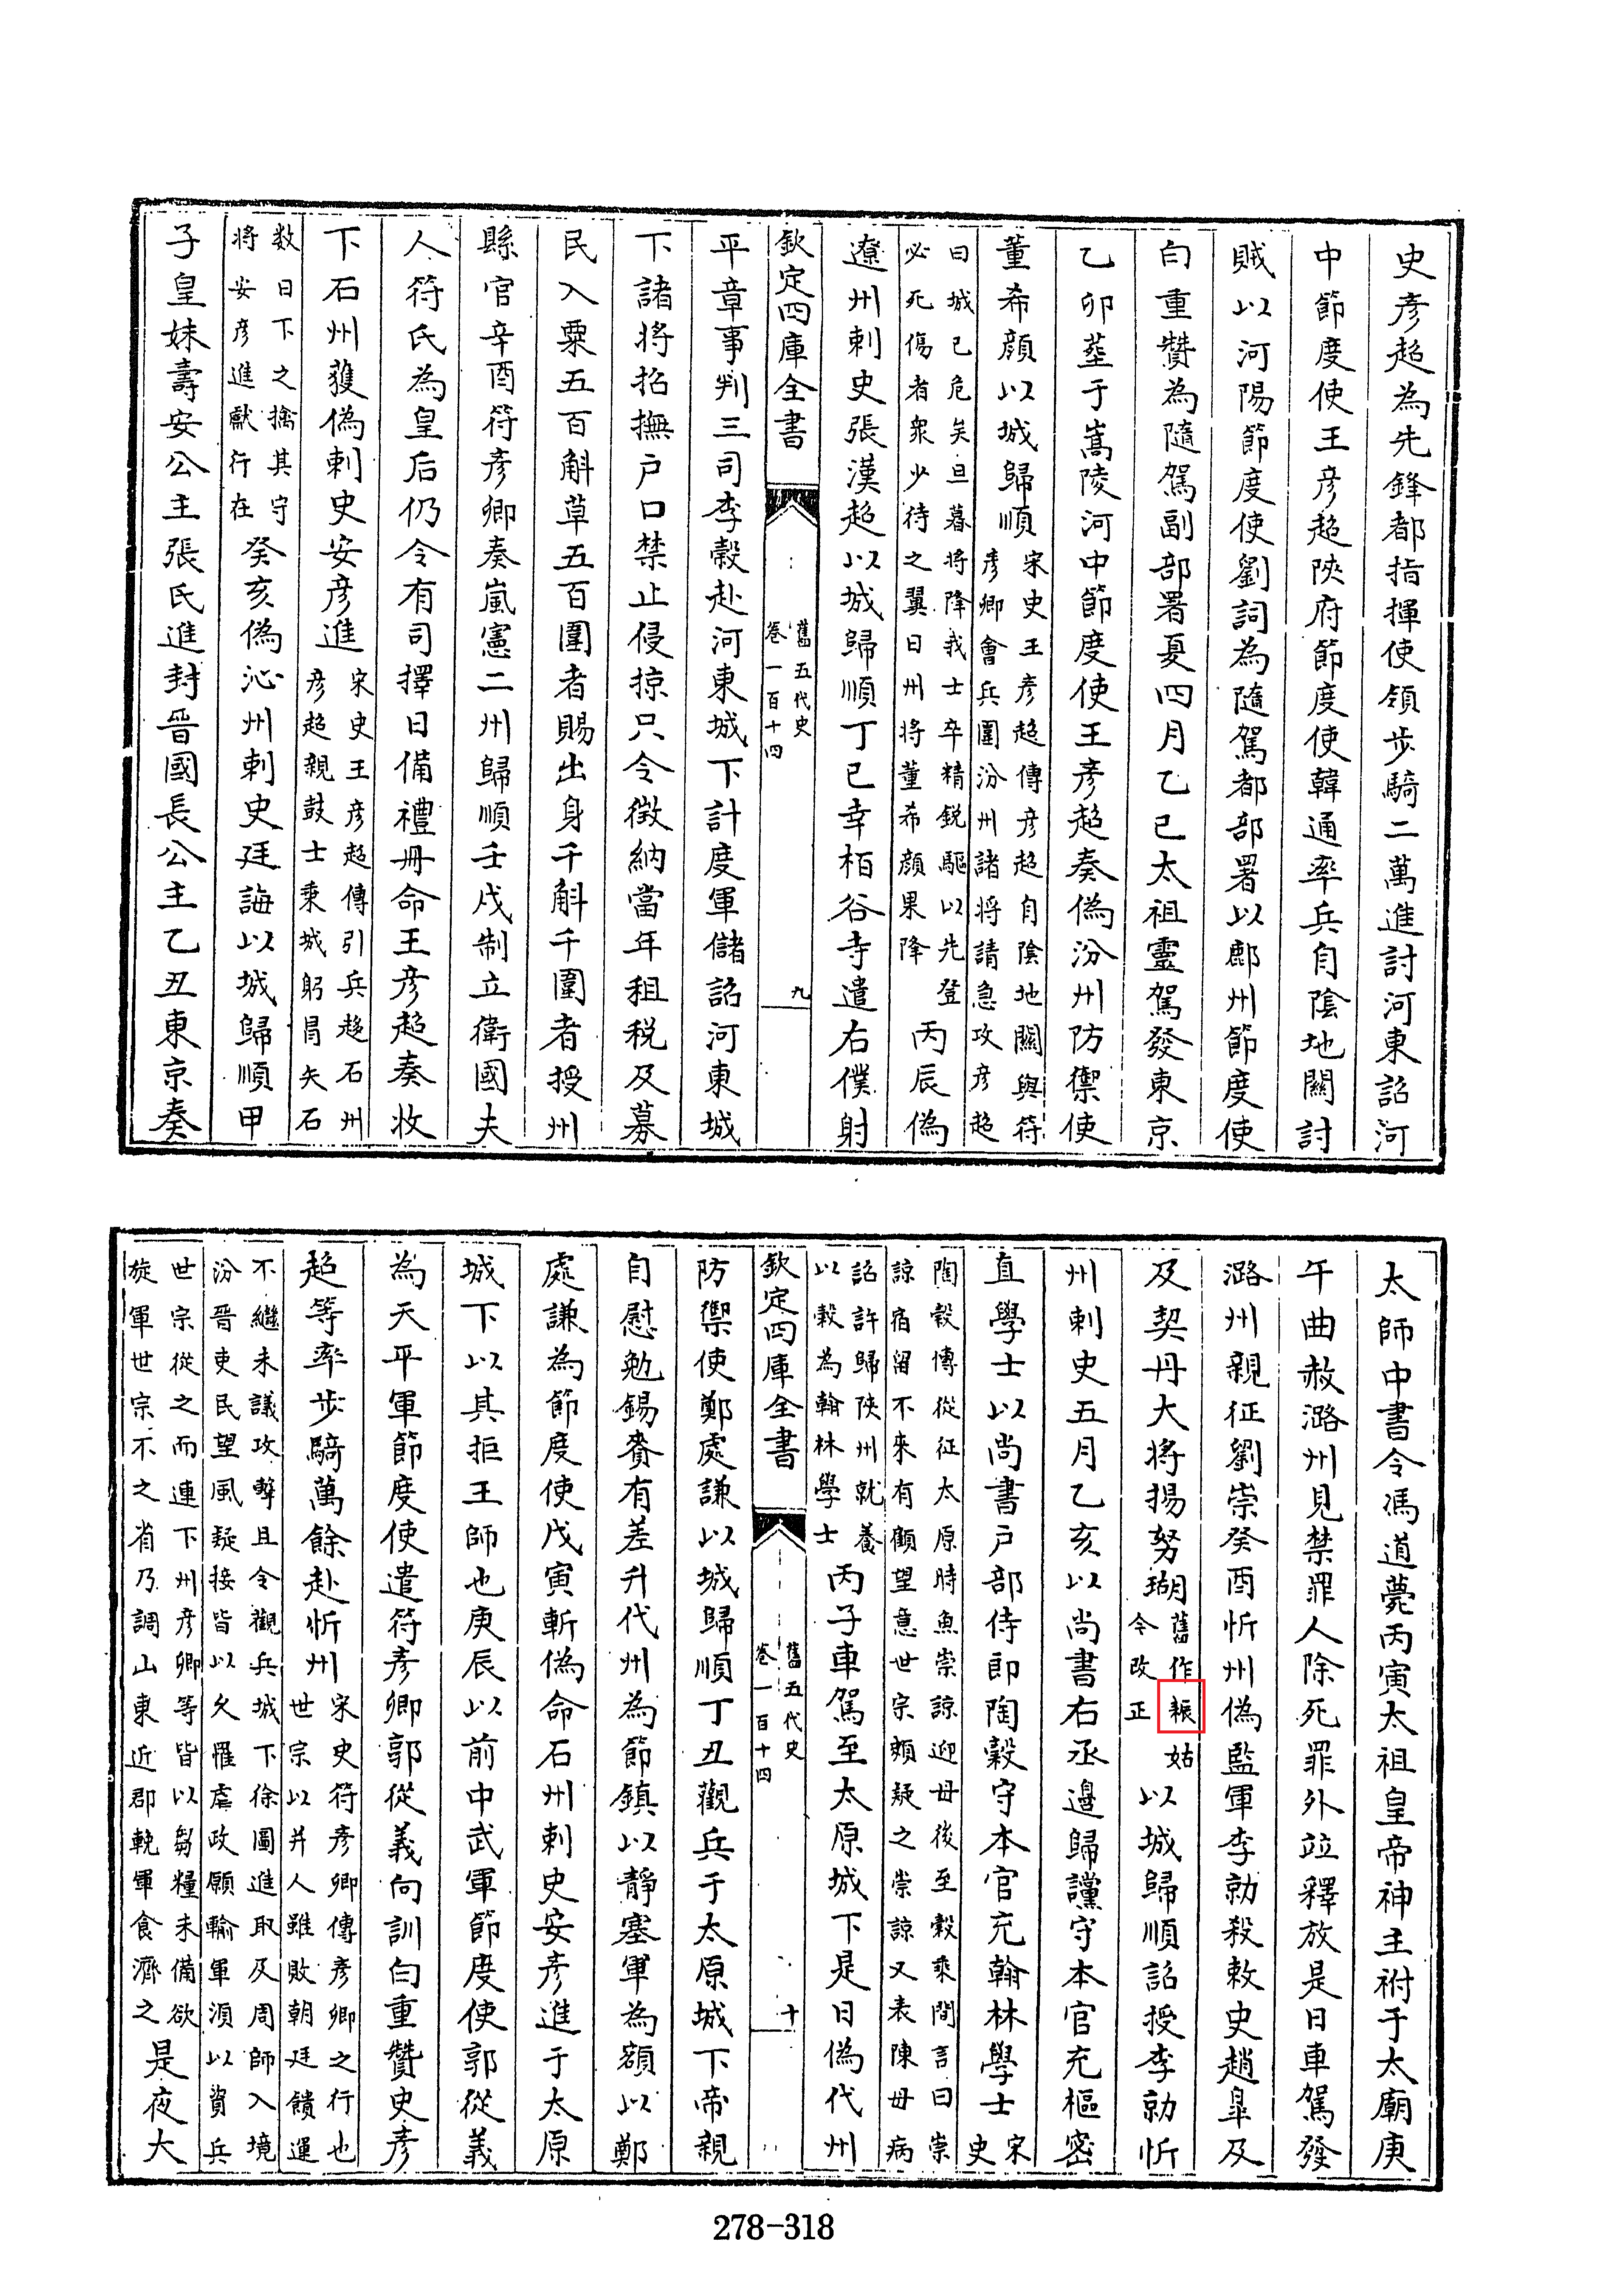 史彦超為先鋒都指揮使領步騎二萬進討河東詔河
中節度使王彦超陜府節度使韓通率兵自陰地關討
賊以河陽節度使劉詞為隨駕都部署以鄜州節度使
白重贊為隨駕副部署夏四月乙巳太祖靈駕發東京
乙卯塟于嵩陵河中節度使王彦超奏偽汾州防禦使
董希顔以城歸順宋史王彦超傳彦超自陰地關與符
彦卿會兵圍汾州諸將請急攻彦超
曰城已危矣旦暮將降我士卒精銳驅以先登
必死傷者衆少待之翼日州將董希顔果降丙辰偽
遼州刺史張漢超以城歸順丁巳幸栢谷寺遣右僕射
欽定四庫全書
舊五代史
卷一百十四
九
平章事判三司李穀赴河東城下計度軍儲詔河東城
下諸將招撫户口禁止侵掠只令徴納當年租税及募
民入粟五百斛草五百圍者賜出身千斛千圍者授州
縣官辛酉符彦卿奏嵐憲二州歸順壬戌制立衛國夫
人符氏為皇后仍令有司擇日備禮册命王彦超奏收
下石州獲偽刺史安彦進宋史王彦超傳引兵趨石州
彦超親鼓士乗城躬冐矢石
数日下之擒其守
將安彦進獻行在癸亥偽沁州刺史廷誨以城歸順甲
子皇妹壽安公主張氏進封晋國長公主乙丑東京奏
太師中書令馮道薨丙寅太祖皇帝神主祔于太廟庚
午曲赦潞州見禁罪人除死罪外竝釋放是日車駕發
潞州親征劉崇癸酉忻州偽監軍李勍殺敕史趙臯及
及契丹大將揚努瑚舊作𫆏姑
今改正以城歸順詔授李勍忻
州刺史五月乙亥以尚書右丞邉歸讜守本官充樞密
直學士以尚書户部侍郎陶穀守本官充翰林學士宋
史
陶穀傳從征太原時魚崇諒迎母後至穀乘間言曰崇
諒宿留不來有顧望意世宗頗疑之崇諒又表陳母病
詔許歸陜州就養
以穀為翰林學士丙子車駕至太原城下是日偽代州
欽定四庫全書
舊五代史
卷一百十四
十
防禦使鄭處謙以城歸順丁丑觀兵于太原城下帝親
自慰勉錫賚有差升代州為節鎮以靜塞軍為額以鄭
處謙為節度使戊寅斬偽命石州刺史安彦進于太原
城下以其拒王師也庚辰以前中武軍節度使郭從義
為天平軍節度使遣符彦卿郭從義向訓白重贊史彦
超等率步騎萬餘赴忻州宋史符彦卿傳彦卿之行也
世宗以并人雖敗朝廷饋運
不繼未議攻擊且令觀兵城下徐圖進取及周師入境
汾晋吏民望風疑接皆以久罹虐政願輸軍湏以資兵
世宗從之而連下州彦卿等皆以芻糧未備欲
旋軍世宗不之省乃調山東近郡輓軍食濟之是夜大
278-318